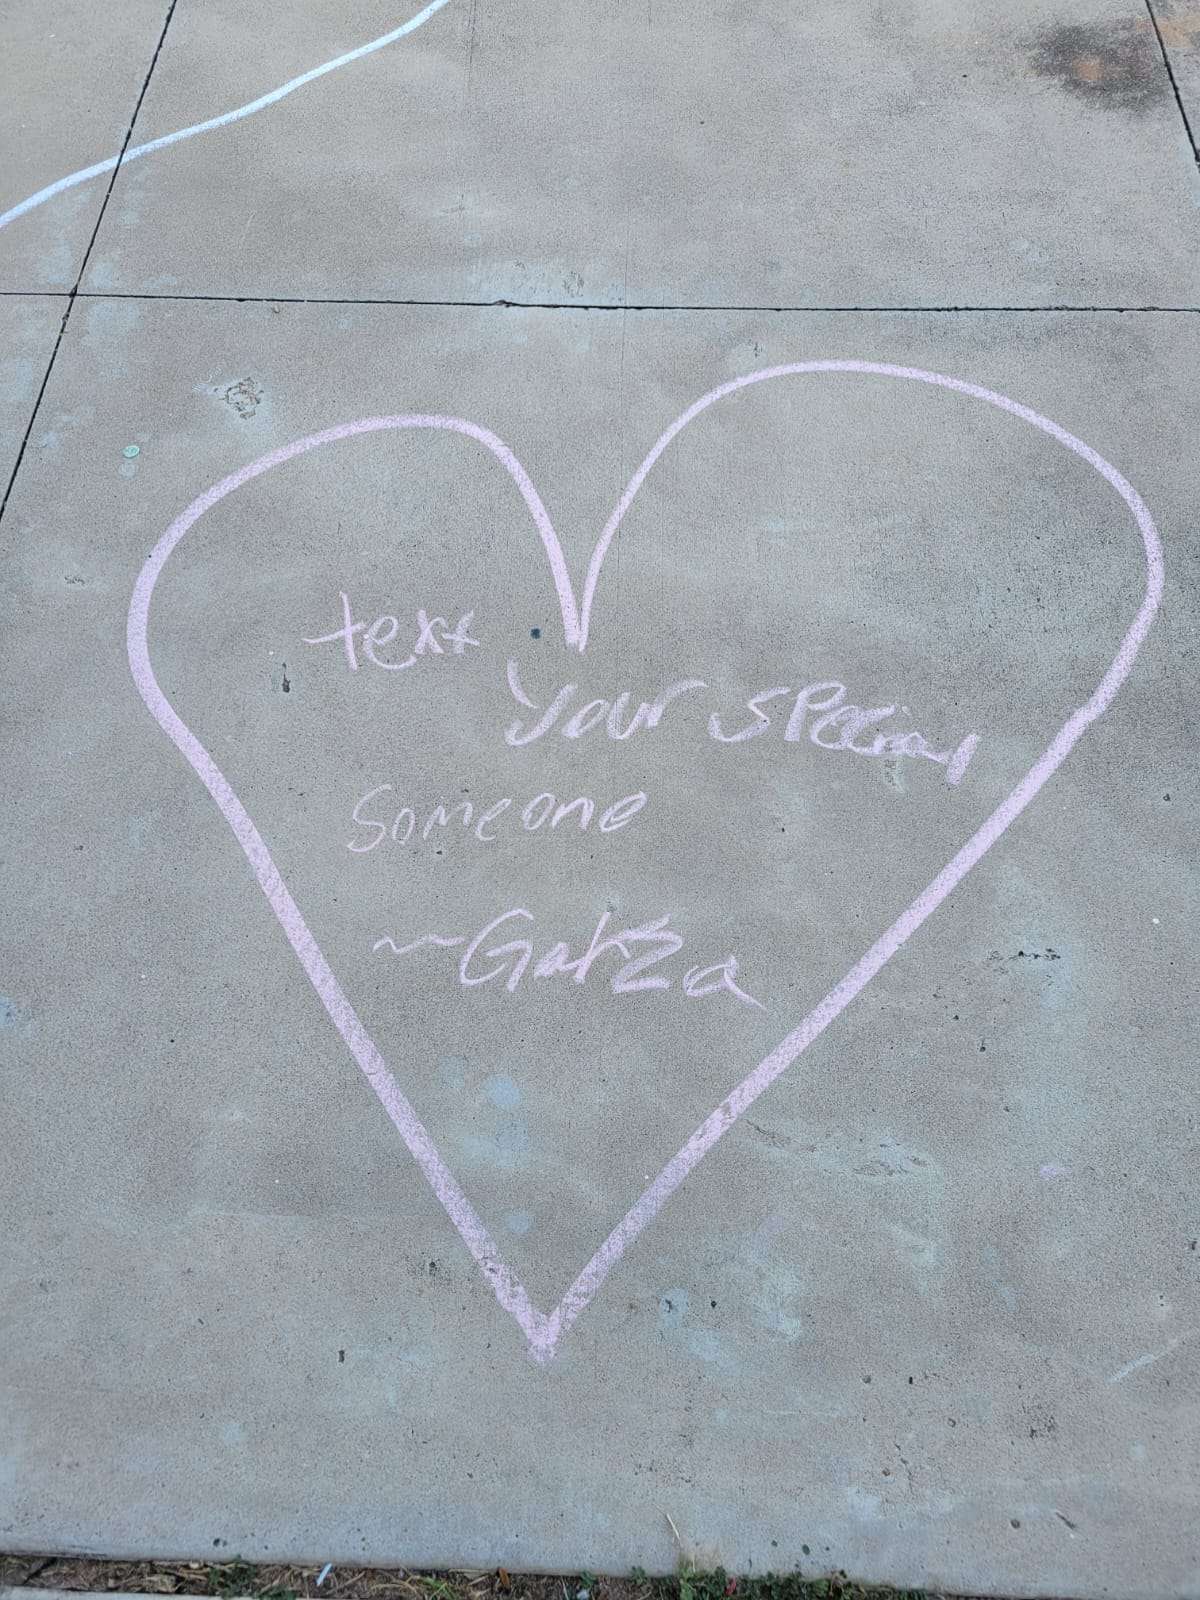 text
your special
someone
~Gatza